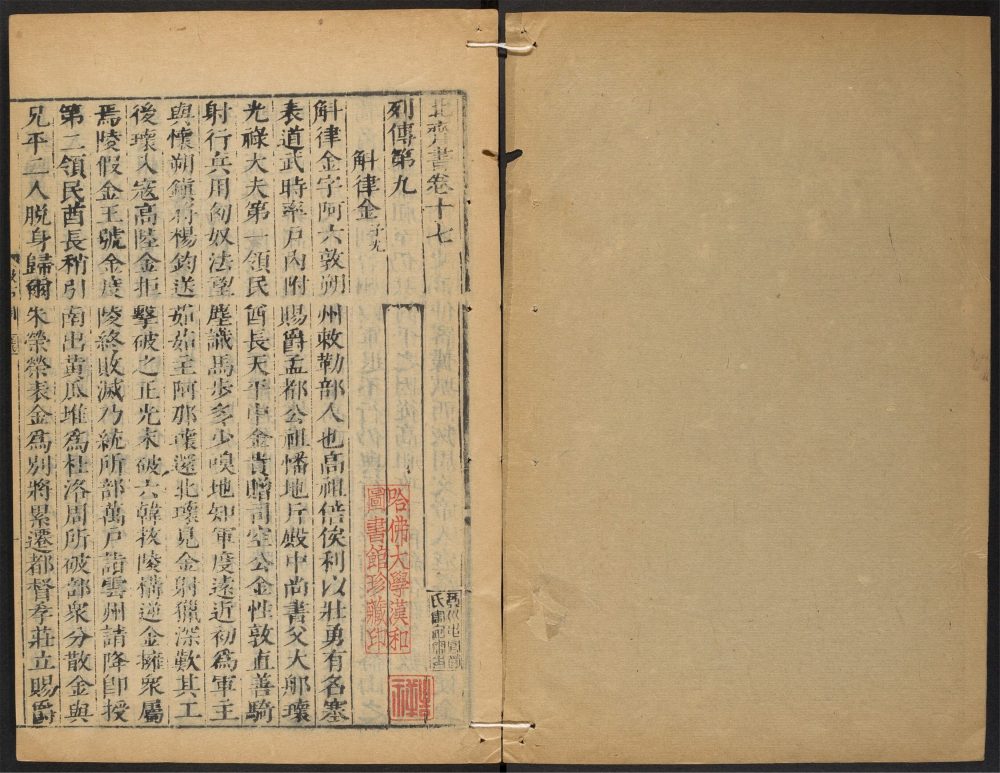 北齊書卷十七
列傳第九
斛律金 子光
斛律金字阿六敦朔州敕勒部人也高祖倍侯利以壯勇有名塞
表道武時率戶內附賜爵孟都公祖幡地斤殿中尚書父大那瓌
光祿大夫第一領民酋長天平中金貴贈司空公金性敦直善騎
射行兵用匈奴法望塵識馬步多少嗅地知軍度遠近初爲軍主
與懷朔鎮將楊鈞送茹茹主阿那瓌還北瓌見金射獵深歎其工
後瓌入寇高陸金拒擊破之正光末破六韓拔陵構逆金擁衆屬
焉陵假金王號金度陵終敗滅乃統所部萬戶詣雲州請降卽授
第二領民酋長稍引南出黃瓜堆爲杜洛周所破部衆分散金與
兄平二人脫身歸爾朱榮榮表金爲別將累遷都督孝莊立賜爵
哈佛大學漢和
圖書館珍藏印